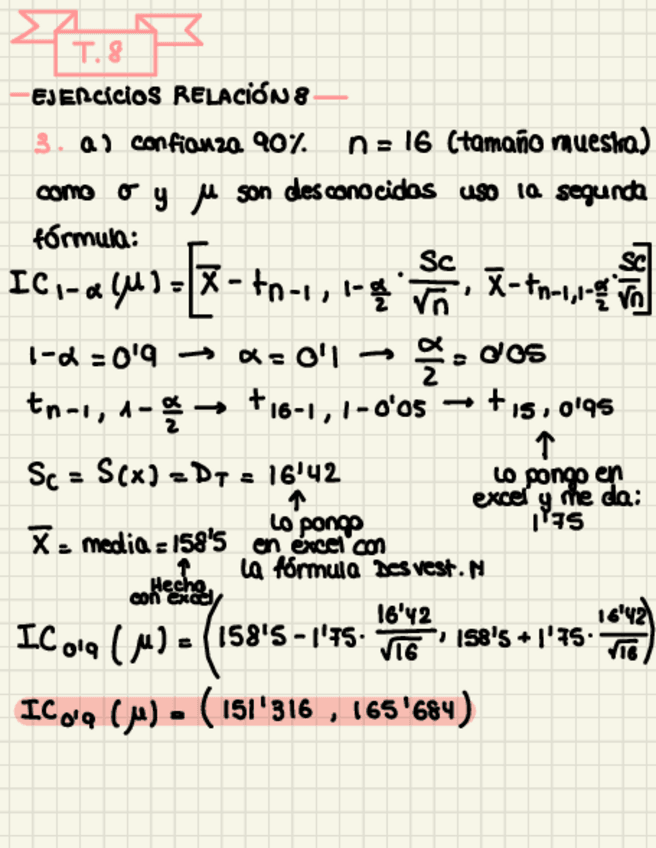 T. 8
EJERCICIOS RELACIÓN 8
3. a) confianza 90% n = 16 (tamaño muestra)
como σ y μ son desconocidas uso la segunda
fórmula:
IC 1-α (μ) = [x̄ - t n-1, 1-α/2 · Sc/√n, x̄ - t n-1, 1-α/2 · Sc/√n]
1-α = 0'9 → α = 0'1 → α/2 = 0'05
t n-1, 1-α/2 → t 16-1, 1-0'05 → t 15, 0'95
↑
Lo pongo en
excel y me da:
1'75
Sc = S(x) = DT = 16'42
↑
Lo pongo
en excel con
la fórmula Desvest. N
X̄ = media = 158'5
↑
Hecho
con excel
IC 0'9 (μ) = (158'5 - 1'75 · 16'42/√16, 158'5 + 1'75 · 16'42/√16)
IC 0'9 (μ) = (151'316, 165'684)